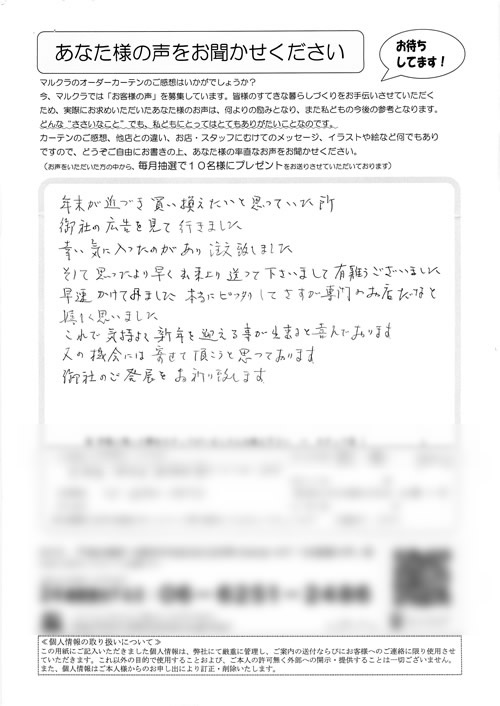 あなた様の声をお聞かせください
お待ち
してます！
マルクラのオーダーカーテンのご感想はいかがでしょうか？
今、マルクラでは「お客様の声」を募集しています。皆様のすてきな暮らしづくりをお手伝いさせていただく
ため、実際にお求めいただいたあなた様のお声は、何よりの励みとなり、また私どもの今後の参考となります。
どんな“ささいなこと”でも、私どもにとってはとてもありがたいことなのです。
カーテンのご感想、他店との違い、お店・スタッフにむけてのメッセージ、イラストや絵など何でもあり
ですので、どうぞご自由にお書きの上、あなた様の率直なお声をお聞かせください。
（お声をいただいた方の中から、毎月抽選で１０名様にプレゼントをお送りさせていただいております）
年末が近づき買い換えたいと思っていた所
御社の広告を見て行きました
幸い気に入ったのがあり注文致しました
そして思ったより早く出来上り送って下さいまして有難うございました
早速かけてみました 本当にピッタリしてさすが専門のお店だなと
嬉しく思いました
これで気持よく新年を迎える事が出来ると喜んでおります
又の機会には寄せて頂こうと思っております
御社のご発展をお祈り致します
06-6251-2486
≪個人情報の取り扱いについて≫
この用紙にご記入いただきました個人情報は、弊社にて厳重に管理し、ご案内の送付ならびにお客様へのご連絡に限り使用させ
ていただきます。これ以外の目的で使用することおよび、ご本人の許可無く外部への開示・提供することは一切ございません。
また、個人情報はご本人様からのお申し出により訂正・削除いたします。